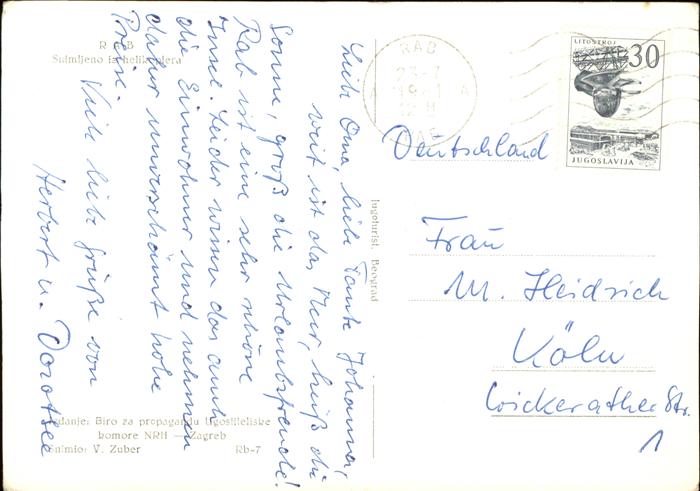 RAB
Snimljeno iz helikoptera
Liebe Oma, liebe Tante Johanna,
weit ist das Meer, heiß die
Sonne, groß die Urlaubsfreude!
Rab ist eine sehr schöne
Insel. Leider wissen das auch
die Einwohner und nehmen
dafür unverschämt hohe
Preise.
Viele liebe Grüße von
Herbert u. Dorothee
Izdanje: Biro za propagandu Ugostiteljske
komore NRH — Zagreb
Snimio: V. Zuber Rb-7
Jugoturist, Beograd
RAB
23-7
1961
12 H
RAB
LITOSTROJ
30
JUGOSLAVIJA
Deutschland
Frau
M. Heidrich
Köln
Wickerather Str.
1